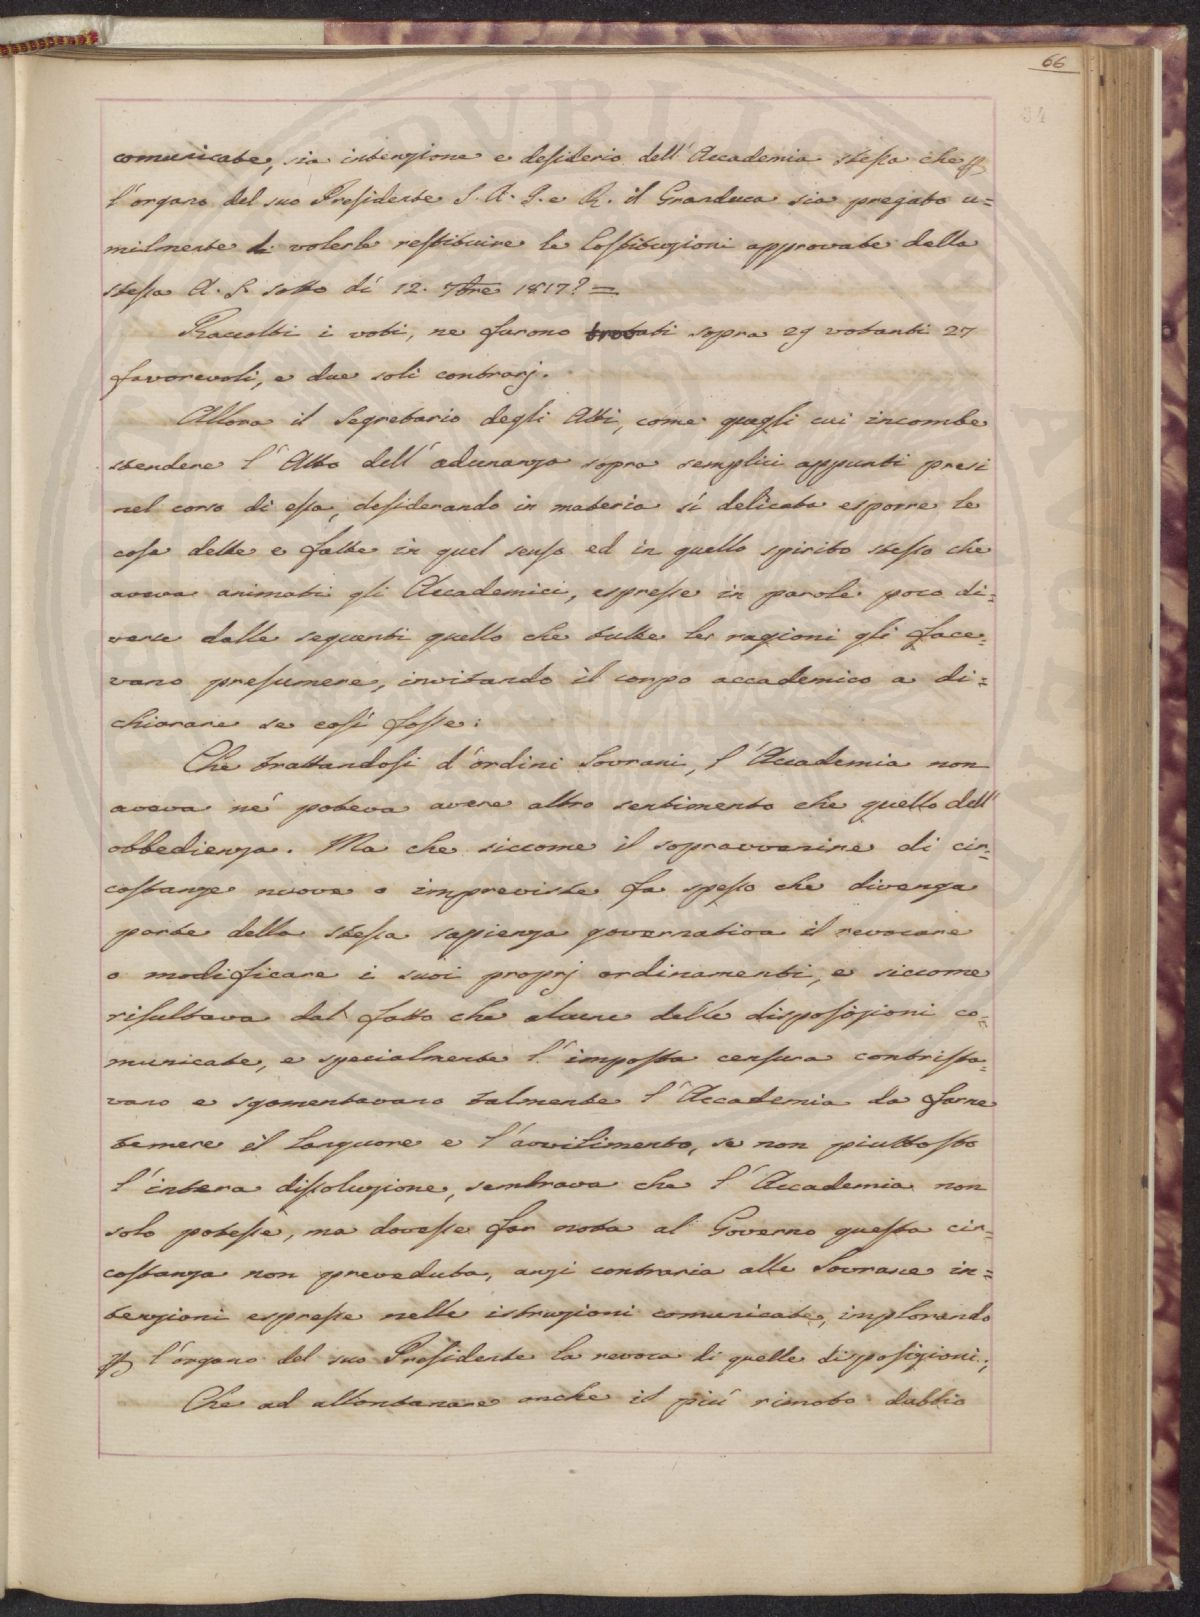 66
34
comunicate, sia intenzione e desiderio dell'Accademia stessa che p
l'organo del suo Presidente S. A. I. e R. il Granduca sia pregato u=
milmente di volerle restituire le Costituzioni approvate dalla
stessa A. S. sotto dì 12. 7bre 1817?=
Raccolti i voti, ne furono trovati sopra 29 votanti 27
favorevoli, e due soli contrarj.
Allora il Segretario degli Atti, come quegli cui incombe
stendere l'Atto dell'adunanza sopra semplici appunti presi
nel corso di essa, desiderando in materia sì delicata esporre le
cose dette e fatte in quel senso ed in quello spirito stesso che
aveva animati gli Accademici, espresse in parole poco di=
verse dalle seguenti quello che tutte le ragioni gli face=
vano presumere, invitando il corpo accademico a di=
chiarare se così fosse:
Che trattandosi d'ordini Sovrani, l'Accademia non
aveva nè poteva avere altro sentimento che quello dell'
obbedienza. Ma che siccome il sopravvenire di cir=
costanze nuove o impreviste fa spesso che divenga
parte della stessa sapienza governativa il revocare
o modificare i suoi proprj ordinamenti, e siccome
risultava dal fatto che alcune delle disposizioni co=
municate, e specialmente l'imposta censura contrista=
vano e sgomentavano talmente l'Accademia da farne
temere il languore e l'avvilimento, se non piuttosto
l'intera dissoluzione, sembrava che l'Accademia non
solo potesse, ma dovesse far nota al Governo questa cir=
costanza non preveduta, anzi contraria alle Sovrane in=
tenzioni espresse nelle istruzioni comunicate, implorando
p l'organo del suo Presidente la revoca di quelle disposizioni;
Che ad allontanare anche il più rimoto dubbio